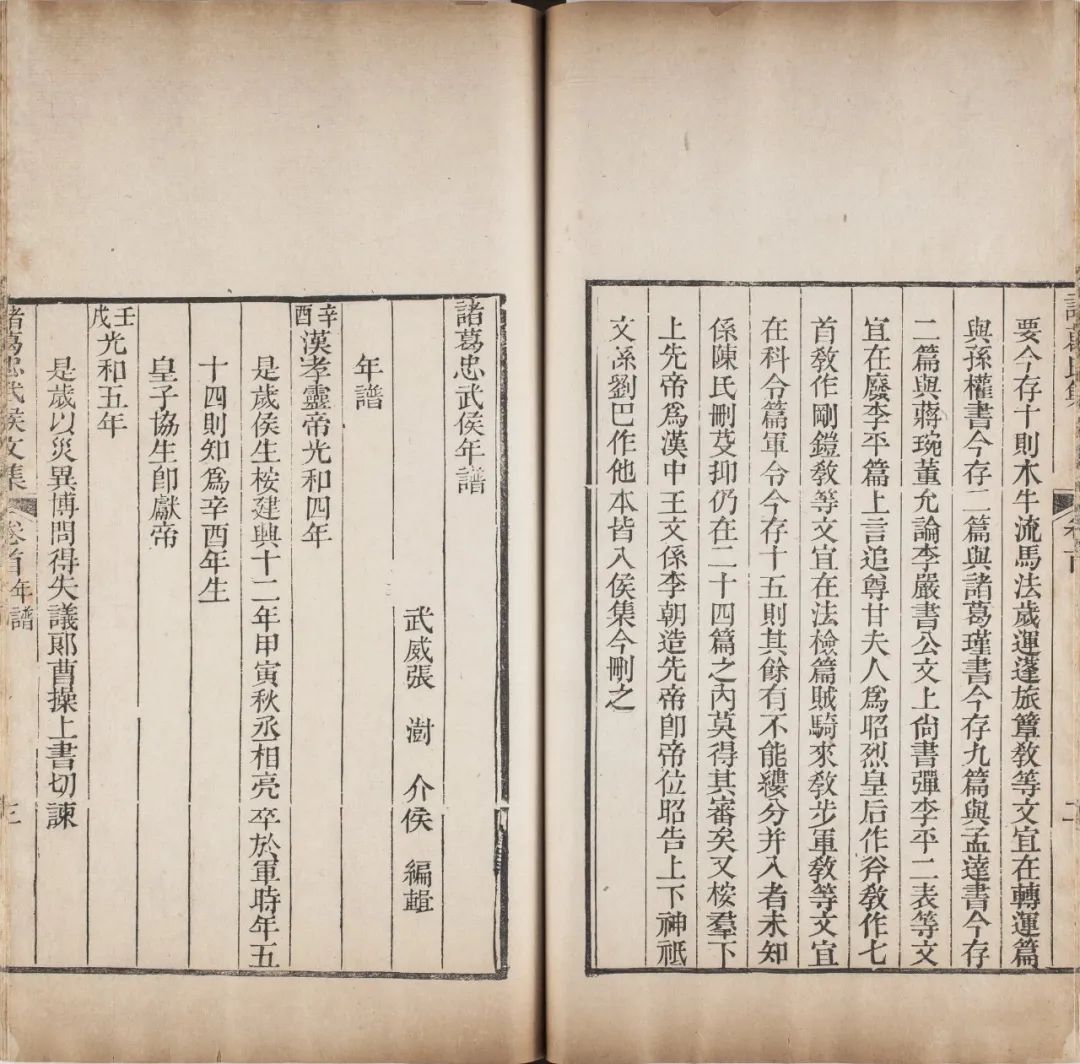 要今存十則木牛流馬法歲運蓬旅簟教等文宜在轉運篇
與孫權書今存二篇與諸葛瑾書今存九篇與孟達書今存
二篇與蔣琬董允論李嚴書公文上尚書彈李平二表等文
宜在廢李平篇上言追尊甘夫人爲昭烈皇后作斧教作七
首教作剛鎧教等文宜在法檢篇賊騎來教步軍教等文宜
在科令篇軍令今存十五則其餘有不能縷分并入者未知
係陳氏刪芟抑仍在二十四篇之內莫得其審矣又桉羣下
上先帝爲漢中王文係李朝造先帝卽帝位昭告上下神祇
文係劉巴作他本皆入侯集今刪之
諸葛忠武侯年譜
武威張 澍 介侯 編輯
年譜
辛酉漢孝靈帝光和四年
是歲侯生桉建興十二年甲寅秋丞相亮卒於軍時年五
十四則知爲辛酉年生
皇子協生卽獻帝
壬戌光和五年
是歲以災異博問得失議郞曹操上書切諫
諸葛忠武侯文集 卷首年譜 三